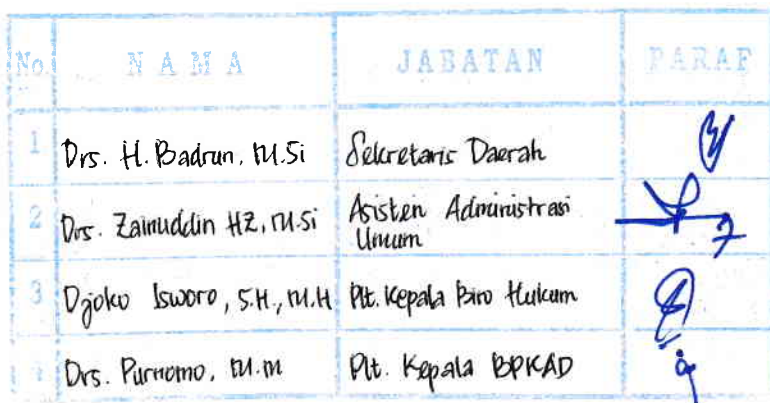 No. N A M A JABATAN PARAF
1 Drs. H. Badrun, M.Si Sekretaris Daerah
2 Drs. Zainuddin HZ, M.Si Asisten Administrasi
Umum
3 Djoko Isworo, S.H., M.H Plt. Kepala Biro Hukum
Drs. Purnomo, M.M Plt. Kepala BPKAD